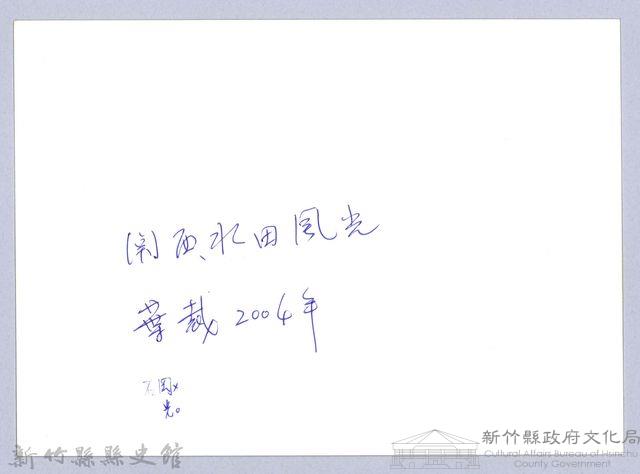 関西水田風光
葉裁 2004年
光。
新竹縣縣史館
新竹縣政府文化局
Cultural Affairs Bureau of Hsinchu
County Government